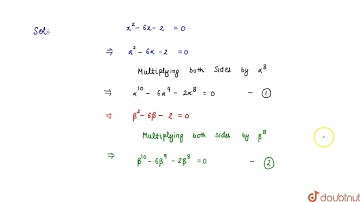 Sol:- x² - 6x - 2 = 0
⇒ α² - 6α - 2 = 0
Multiplying both sides by α⁸
⇒ α¹⁰ - 6α⁹ - 2α⁸ = 0 - ①
⇒ β² - 6β - 2 = 0
Multiplying both sides by β⁸
⇒ β¹⁰ - 6β⁹ - 2β⁸ = 0 - ②
doubtnut